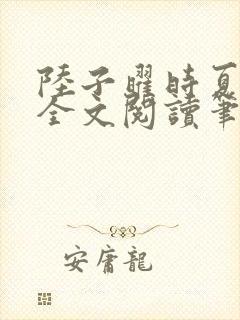 陸子曜時夏
全文閱讀筆
安庸龍